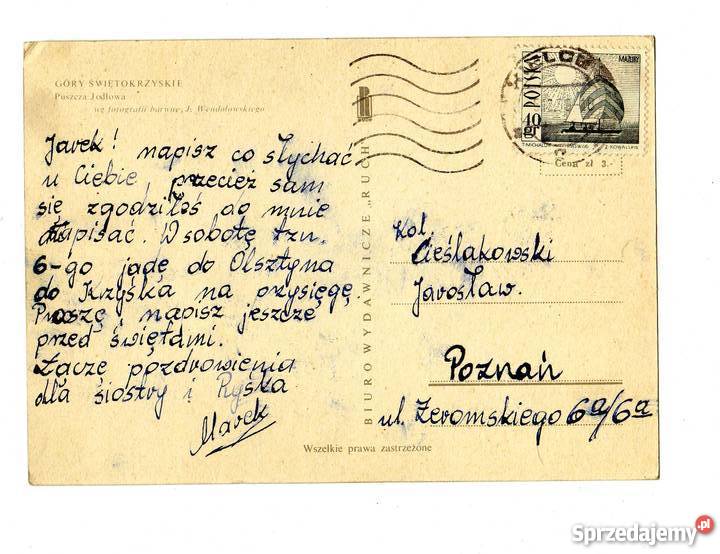 GÓRY ŚWIĘTOKRZYSKIE
Puszcza Jodłowa
wg fotografii barwnej J. Wendołowskiego
Jarek! napisz co słychać
u Ciebie przecież sam
się zgodziłeś do mnie
napisać. W sobotę tzn.
6-go jadę do Olsztyna
do Krzyśka na przysięgę.
Proszę napisz jeszcze
przed świętami.
Łączę pozdrowienia
dla siostry i Ryśka
Marek
BIURO WYDAWNICZE „RUCH"
R
POLSKA
MAZURY
40 gr
Z KOWALSKI
Cena zł 3.-
Kol.
Cieślakowski
Jarosław.
Poznań
ul. Żeromskiego 6a/6a
Wszelkie prawa zastrzeżone
Sprzedajemy.pl